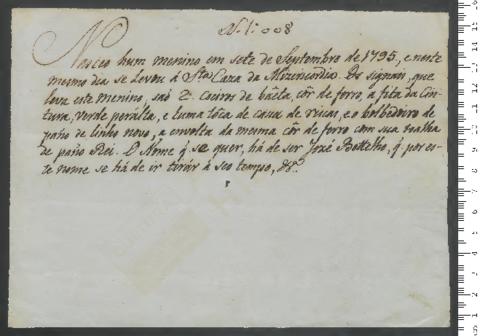 N. 1: 008
Nasceo hum menino em sete de Septembro de 1795, e neste
mesmo dia se levou á Sta Caza da Mizericordia. Os signais, que
leva este menino, saõ 2. Coeiros de baeta, côr de forro, a fita da Cin-
tura, verde peralta, e huma toca de caxa de riscas, e o
pano de linho novo, a envolta da mesma côr de forro com sua
de pano Rei. O Nome q se quer, há de ser José Botelho, q por es-
te nome se há de ir tirár á seo tempo, &ª